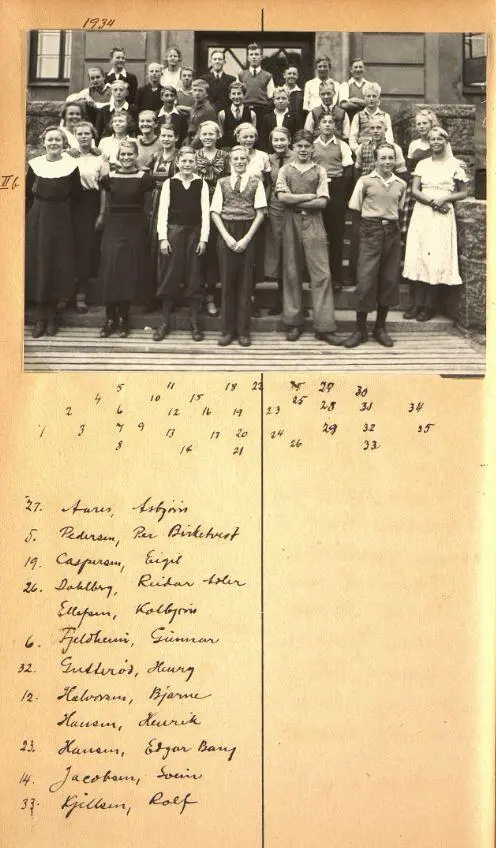 1934
II b
5 11 18 22 35 27 30
4 10 15 25
2 6 12 16 19 23 28 31 34
1 3 7 9 13 17 20 24 29 32 35
8 14 21 26 33
27. Aures, Asbjørn
5. Pedersen, Per Birketvest
19. Caspersen, Eigil
26. Dahlberg, Reidar Adler
Ellefsen, Kolbjørn
6. Fjeldheim, Gunnar
32. Gutterød, Henry
12. Halvorsen, Bjarne
Hansen, Henrik
23. Hansen, Edgar Bang
14. Jacobsen, Svein
33. Kjellsen, Rolf